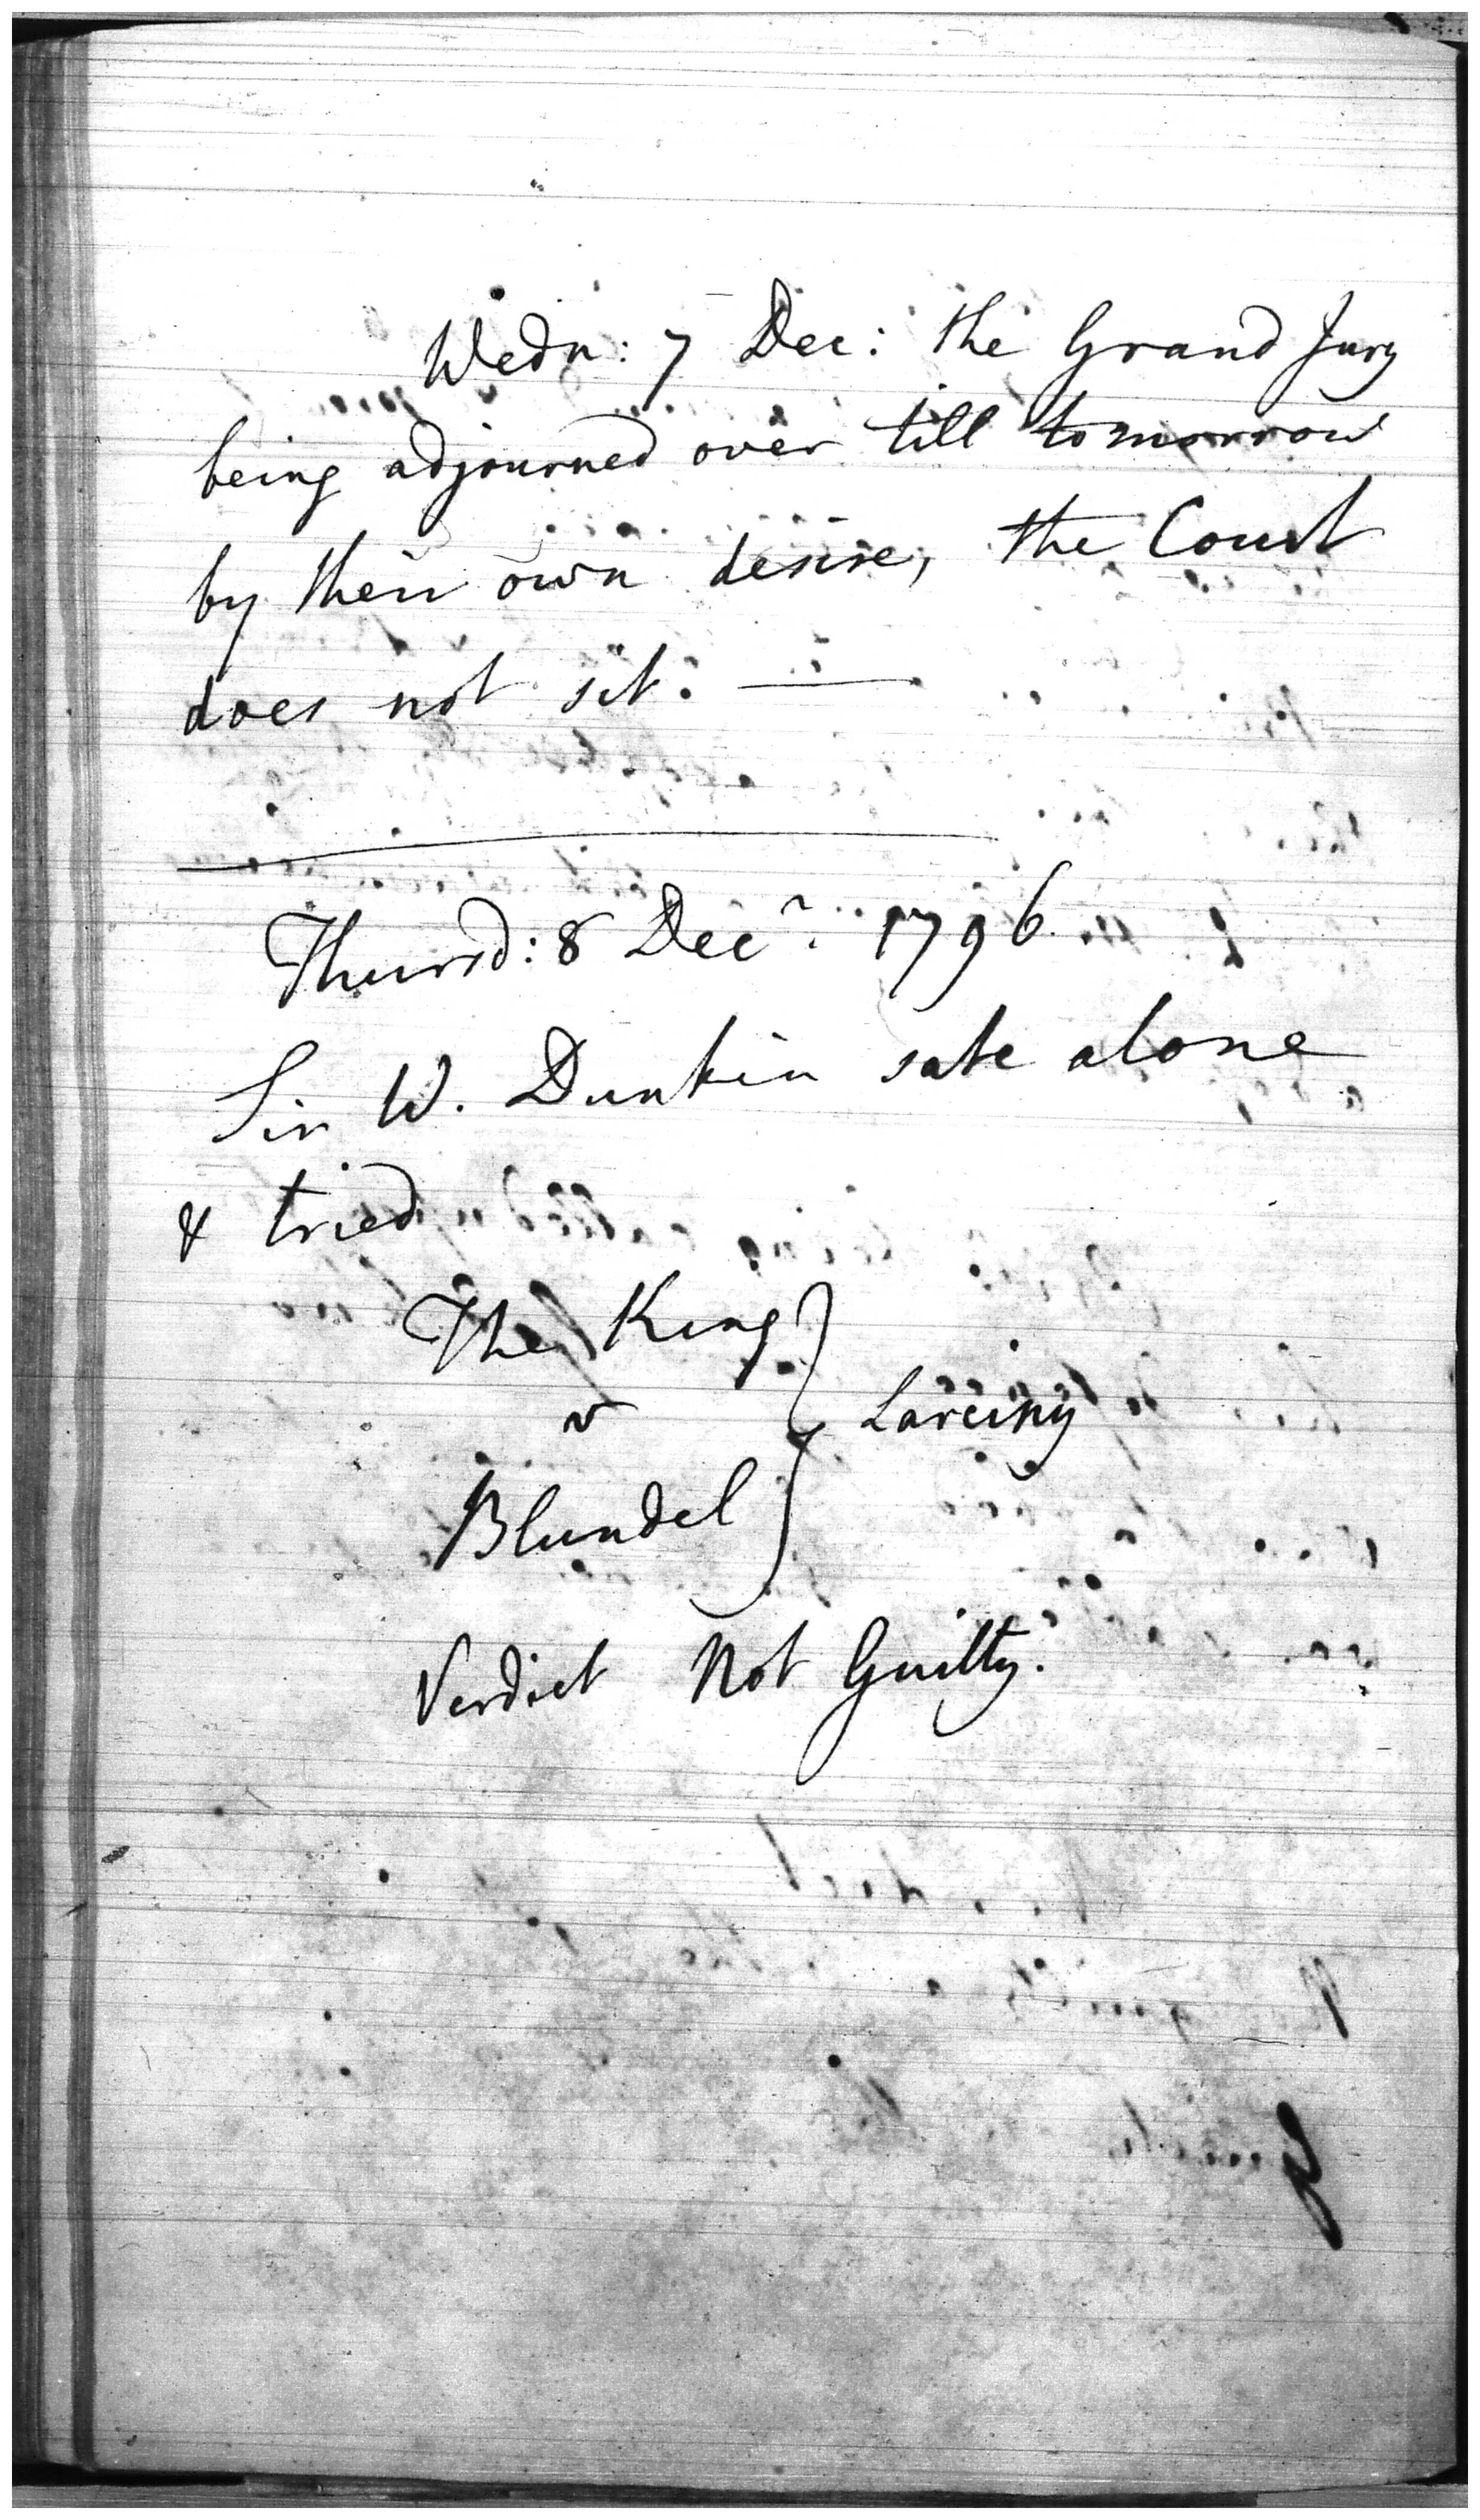 Wedn: 7 Dec: the Grand Jury
being adjourned over till tomorrow
by their own desire, the Court
does not sit. —
Thursd: 8 Decr. 1796.
Sir W. Dunkin sate alone
& tried
The King
v } Larceny
Blundel
Verdict Not Guilty.